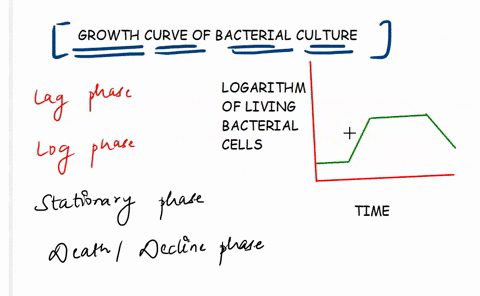 GROWTH CURVE OF BACTERIAL CULTURE
Lag phase
Log phase
Stationary phase
Death / Decline phase
LOGARITHM
OF LIVING
BACTERIAL
CELLS
TIME